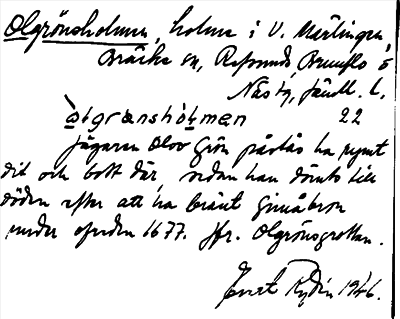 Olgrönsholmen, holme i V. Mårlingen,
Bräcke sn, Refsunds Brunflo o
Näs tg, Jämtl. l.
22
Jägaren Olov Grön påstås ha rymt
dit och bott där, sedan han dömts till
döden efter att ha bränt Gimåbron
under ofreden 1677. Jfr. Olgrönsgrottan.
Ernst Rydén 1946.